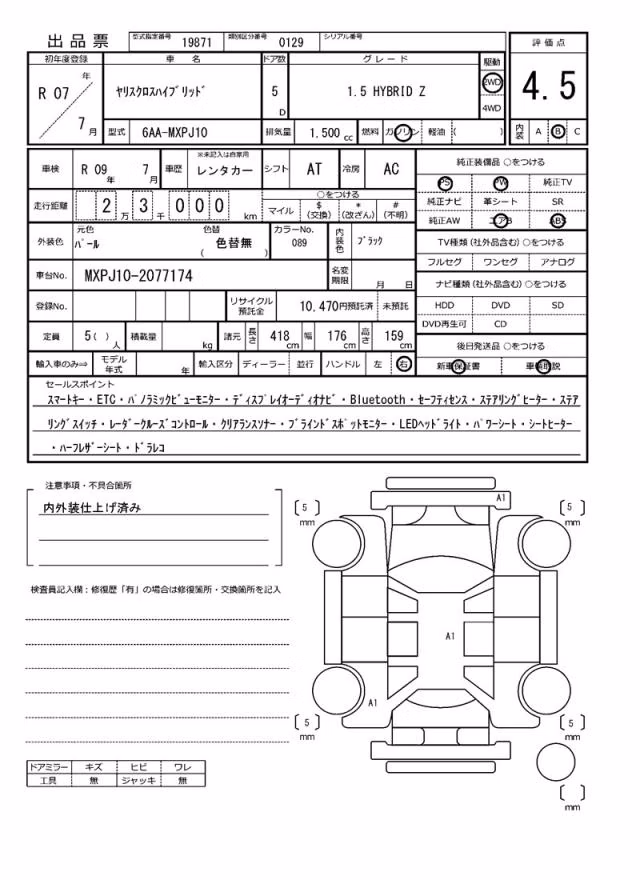 出品票 型式指定番号 19871 類別区分番号 0129 シリアル番号
初年度登録 車名 ドア数 グレード 駆動 評価点
R 07 年 7 月 ﾔﾘｽｸﾛｽﾊｲﾌﾞﾘｯﾄﾞ 5 D 1.5 HYBRID Z 2WD 4WD 4.5
型式 6AA-MXPJ10 排気量 1.500 cc 燃料 ガソリン 軽油 ( ) 内装 A B C
車検 R 09 年 7 月 車歴 ※未記入は自家用 レンタカー シフト AT 冷房 AC
走行距離 2 万 3 千 0 0 0 km ○をつける マイル $ (交換) * (改ざん) # (不明)
外装色 元色 ﾊﾟｰﾙ 色替 色替無 ( ) カラーNo. 089 内装色 ﾌﾞﾗｯｸ
車台No. MXPJ10-2077174 名変期限 月 日
登録No. リサイクル預託金 10.470円預託済 未預託
定員 5( ) 人 積載量 kg 諸元 長さ 418 cm 幅 176 cm 高さ 159 cm
輸入車のみ⇒ モデル年式 年 輸入区分 ディーラー 並行 ハンドル 左 右
純正装備品 ○をつける
PS PW 純正TV
純正ナビ 革シート SR
純正AW エアB ABS
TV種類(社外品含む)○をつける
フルセグ ワンセグ アナログ
ナビ種類(社外品含む)○をつける
HDD DVD SD
DVD再生可 CD
後日発送品 ○をつける
新車保証書 車輌取説
セールスポイント
ｽﾏｰﾄｷｰ・ETC・ﾊﾟﾉﾗﾐｯｸﾋﾞｭｰﾓﾆﾀｰ・ﾃﾞｨｽﾌﾟﾚｲｵｰﾃﾞｨｵﾅﾋﾞ・Bluetooth・ｾｰﾌﾃｨｾﾝｽ・ｽﾃｱﾘﾝｸﾞﾋｰﾀｰ・ｽﾃｱ
ﾘﾝｸﾞｽｲｯﾁ・ﾚｰﾀﾞｰｸﾙｰｽﾞｺﾝﾄﾛｰﾙ・ｸﾘｱﾗﾝｽｿﾅｰ・ﾌﾞﾗｲﾝﾄﾞｽﾎﾟｯﾄﾓﾆﾀｰ・LEDﾍｯﾄﾞﾗｲﾄ・ﾊﾟﾜｰｼｰﾄ・ｼｰﾄﾋｰﾀｰ
・ﾊｰﾌﾚｻﾞｰｼｰﾄ・ﾄﾞﾗﾚｺ
注意事項・不具合箇所
内外装仕上げ済み
検査員記入欄：修復歴「有」の場合は修復箇所・交換箇所を記入
A1
[ 5 ] mm [ 5 ] mm
A1
A1
[ 5 ] mm [ 5 ] mm
[ ] mm
ドアミラー キズ ヒビ ワレ
工具 無 ジャッキ 無